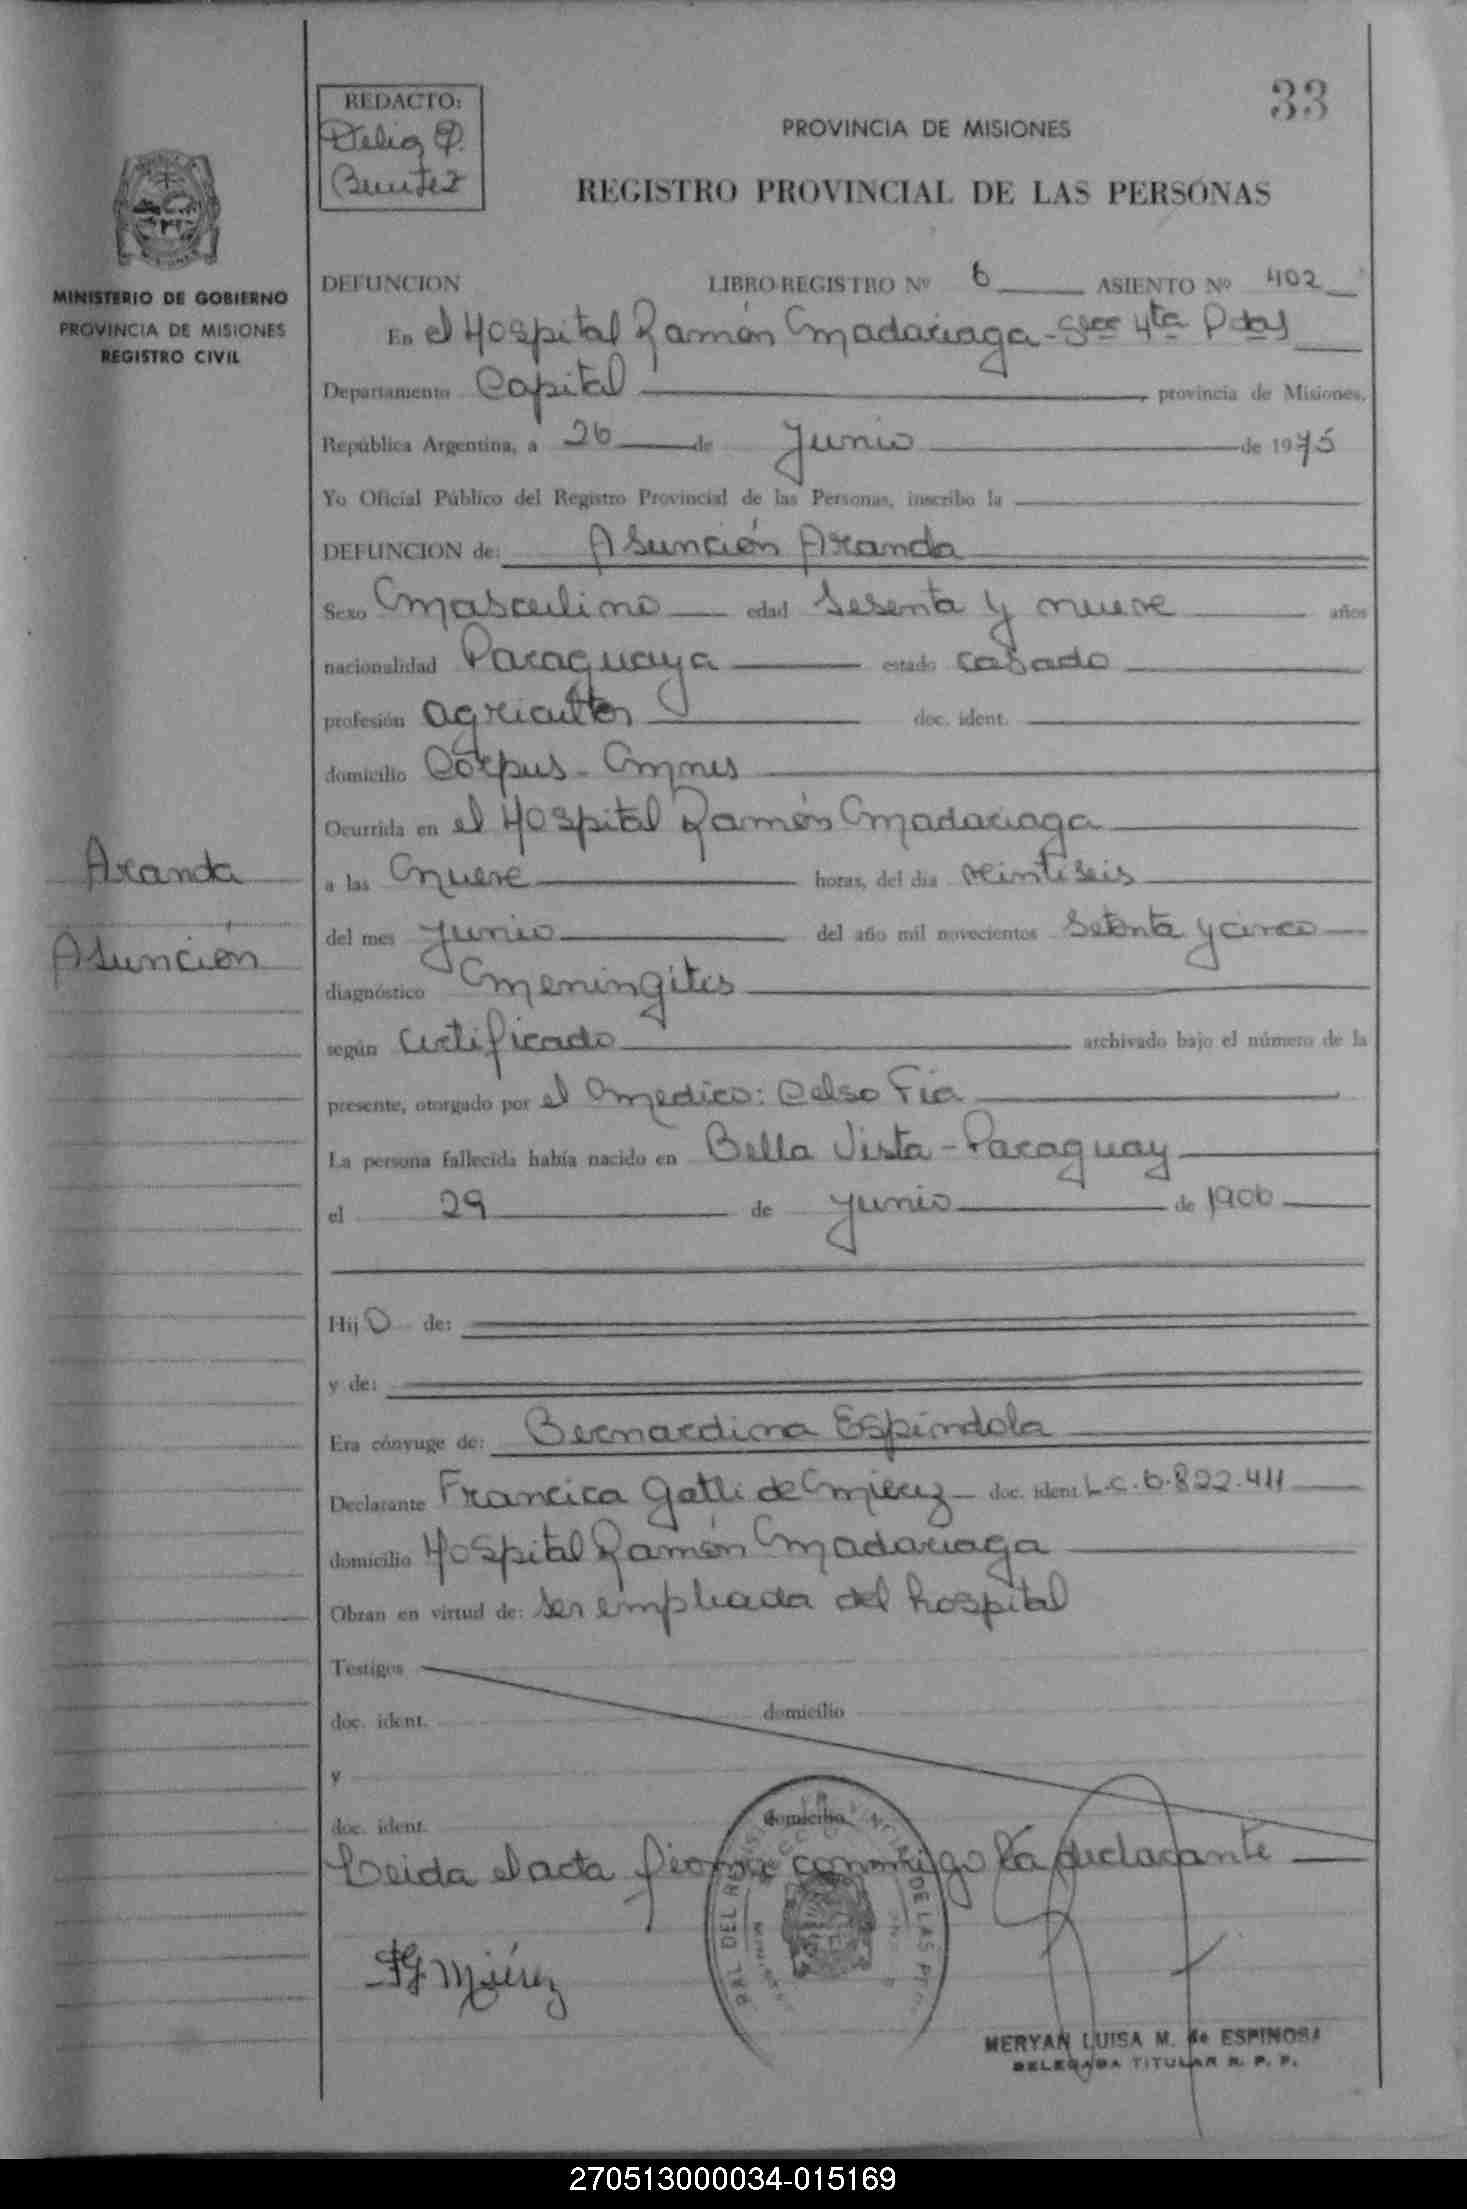 33
REDACTO:
Delia P.
Benitez
PROVINCIA DE MISIONES
REGISTRO PROVINCIAL DE LAS PERSONAS
MINISTERIO DE GOBIERNO
PROVINCIA DE MISIONES
REGISTRO CIVIL
DEFUNCION LIBRO-REGISTRO Nº 6 ASIENTO Nº 402
En el Hospital Ramón Madariaga - Secc 4ta Pdas
Departamento Capital, provincia de Misiones,
República Argentina, a 26 de Junio de 1975
Yo Oficial Público del Registro Provincial de las Personas, inscribo la
DEFUNCION de: Asunción Aranda
Sexo Masculino edad sesenta y nueve años
nacionalidad Paraguaya estado casado
profesión agricultor doc. ident.
domicilio Corpus - Mnes
Ocurrida en el Hospital Ramón Madariaga
a las nueve horas, del día veintiseis
del mes junio del año mil novecientos setenta y cinco
diagnóstico Meningitis
según certificado archivado bajo el número de la
presente, otorgado por el Medico: Celso Fia
La persona fallecida había nacido en Bella Vista - Paraguay
el 29 de junio de 1906
Hijo de:
y de:
Era cónyuge de: Bernardina Espíndola
Declarante Francica Gatti de Mierez doc. ident. L.C. 6.822.411
domicilio Hospital Ramón Madariaga
Obran en virtud de: ser empleada del hospital
Testigos
doc. ident. domicilio
y
doc. ident. domicilio
Leida el acta firma conmigo la declarante
Aranda
Asunción
FG Miérez
MERYAN LUISA M. de ESPINOSA
DELEGADA TITULAR R. P. P.
270513000034-015169